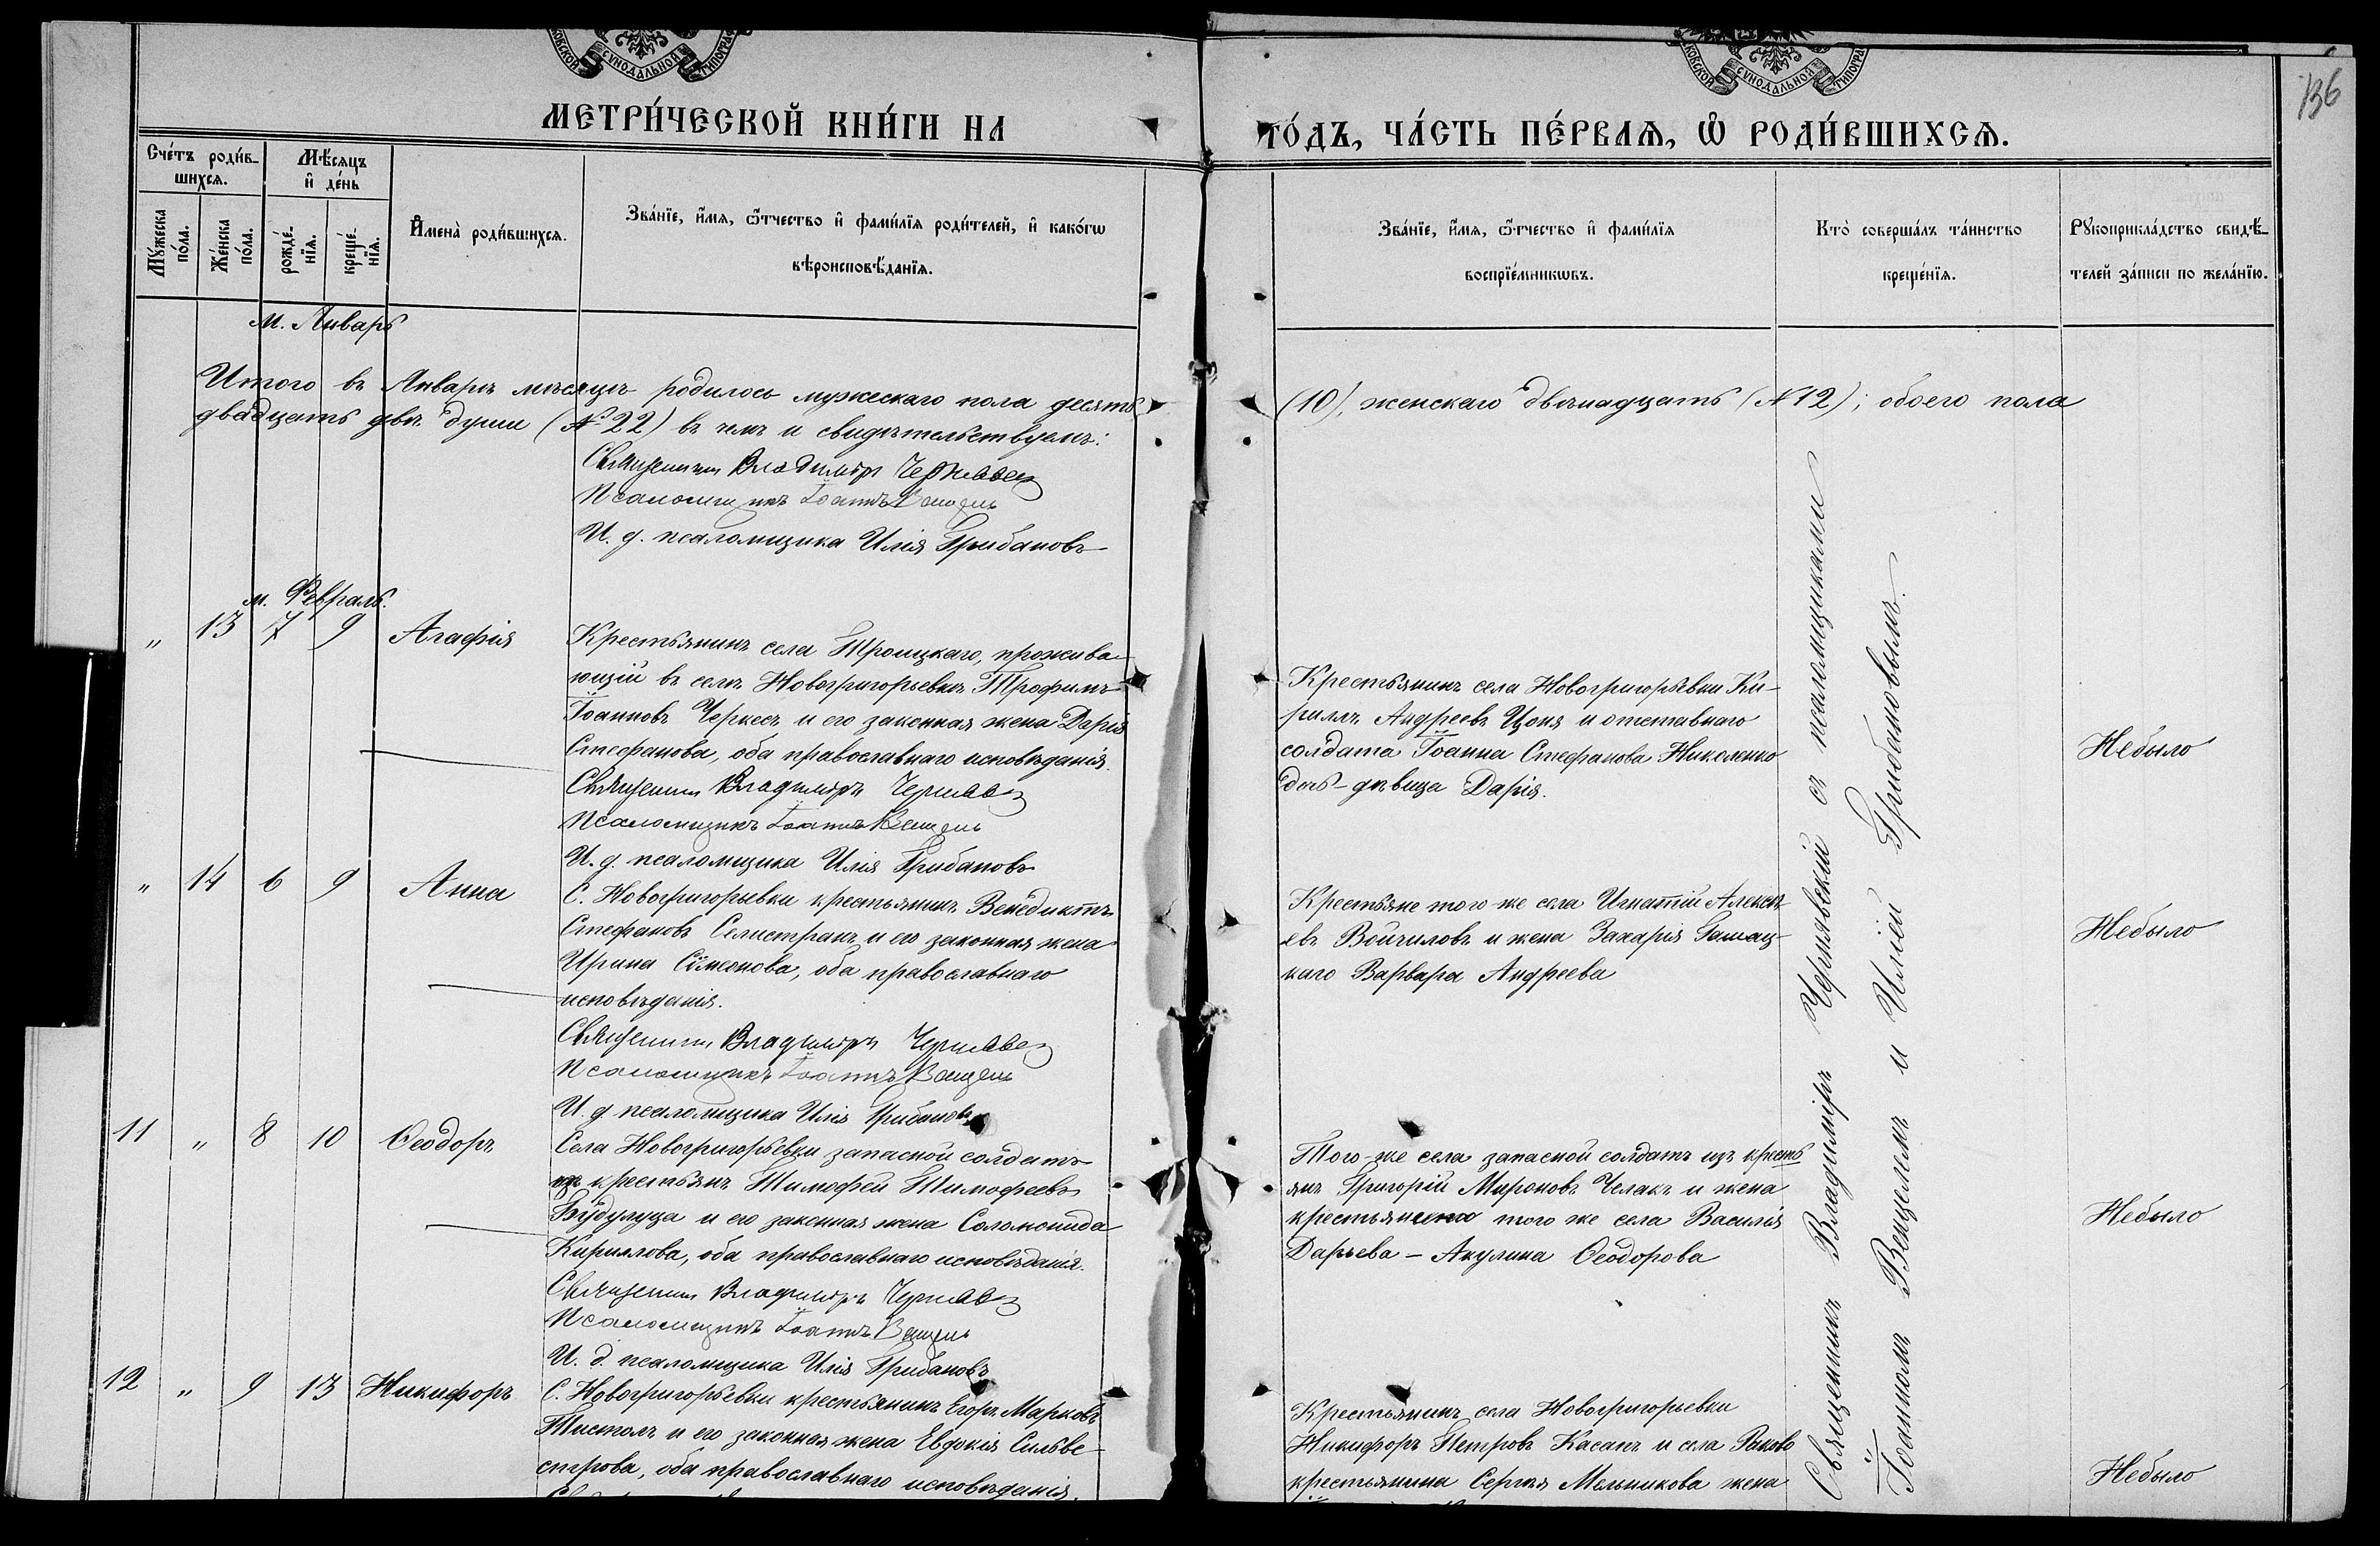 МЕТРИ́ЧЕСКОЙ КНИ́ГИ НА
ГО́ДЪ, ЧА́СТЬ ПЕ́РВАѦ, Ѡ҆ РОДИ́ВШИХСѦ.
136
Сче́тъ роди́в-
шихсѧ.
Мѣ́сѧцъ
и҆ де́нь
Мꙋ́жеска
по́ла.
Же́нска
по́ла.
рожде́-
нїѧ.
креще́-
нїѧ.
И҆мена̀ роди́вшихсѧ.
Зва́нїе, и҆́мѧ, ѻ҆́тчество и҆ фами́лїѧ роди́телей, и҆ како́гѡ
вѣроисповѣ́данїѧ.
Зва́нїе, и҆́мѧ, ѻ҆́тчество и҆ фами́лїѧ
воспрїе́мникѡвъ.
Кто̀ соверша́лъ та́инство
креще́нїѧ.
Рꙋкоприкла́дство свидѣ́-
телей за́писи по жела́нїю.
м. Январь
Итого въ Январѣ мѣсяцѣ родилось мужескаго пола десять
(10), женскаго двѣнадцать (№12); обоего пола
двадцать двѣ души (№22) въ чемъ и свидѣтельствуемъ:
Священникъ Владиміръ
Псаломщикъ Іоаннъ Венцель
И. д. псаломщика Илія Грибановъ
м. Февраль.
„ 13 7 9 Агафія
Крестьянинъ села Троицкаго, прожива-
ющій въ селѣ Новогригорьевкѣ Трофимъ
Іоанновъ Черкесъ и его законная жена Дарія
Стефанова, оба православнаго исповѣданія.
Священникъ Владиміръ
Псаломщикъ Іоаннъ Венцель
И. д. псаломщика Илія Грибановъ
Крестьянинъ села Новогригорьевки Ки-
риллъ Андреевъ Цопа и отставнаго
солдата Іоанна Стефанова Николенко
дочь-дѣвица Дарія.
Небыло
„ 14 6 9 Анна
С. Новогригорьевки крестьянинъ Венедиктъ
Стефановъ Селистранъ и его законная жена
Ирина Симеонова, оба православнаго
исповѣданія.
Священникъ Владиміръ
Псаломщикъ Іоаннъ Венцель
И. д. псаломщика Илія Грибановъ
Крестьяне того-же села Игнатій Алексѣ-
евъ Войчиловъ и жена Захарія
Варвара Андреева
Небыло
11 „ 8 10 Ѳеодоръ
Села Новогригорьевки запасной солдатъ
изъ крестьянъ Тимофей Тимофеевъ
Будулуца и его законная жена Соломонида
Кириллова, оба православнаго исповѣданія.
Священникъ Владиміръ
Псаломщикъ Іоаннъ Венцель
И. д. псаломщика Илія Грибановъ
Того-же села запасной солдатъ изъ кресть
янъ Григорій Мироновъ Челакъ и жена
того же села Василія
Дарьева - Акулина Ѳеодорова
Небыло
12 „ 9 13 Никифоръ
С. Новогригорьевки крестьянинъ Егоръ Марковъ
Тистолъ и его законная жена Евдокія Сильве-
строва, оба православнаго исповѣданія.
Крестьянинъ села Новогригорьевки
Никифоръ Петровъ Касапъ и села Рыково
крестьянина Сергѣя Мельникова жена
Небыло
Священникъ Владиміръ Чернявскій съ псаломщиками
Іоанномъ Венцелемъ и Иліей Грибановымъ.